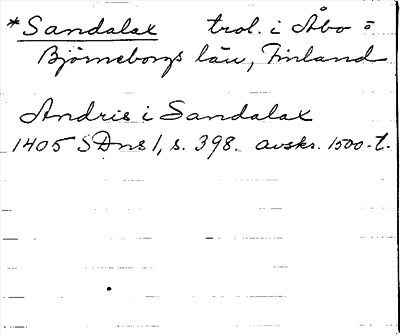 *Sandalax trol. i Åbo =
Björneborgs län, Finland
Andris i Sandalax
1405 SDns 1, s. 398. avskr. 1500-t.